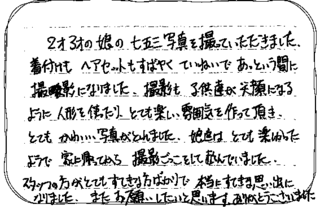 2才3才の娘の七五三写真を撮っていただきました。
着付けもヘアセットもすばやくていねいであっという間に
撮影になりました。撮影も子供達が笑顔になる
ように人形を使ったり、とても楽しい雰囲気を作って頂き、
とてもかわいい写真がとれました。娘達はとても楽しかった
ようで家に帰ってから撮影ごっこをして遊んでいました。
スタッフの方がとてもすてきな方ばかりで本当にすてきな思い出に
なりました。またお願いしたいと思います。ありがとうございました